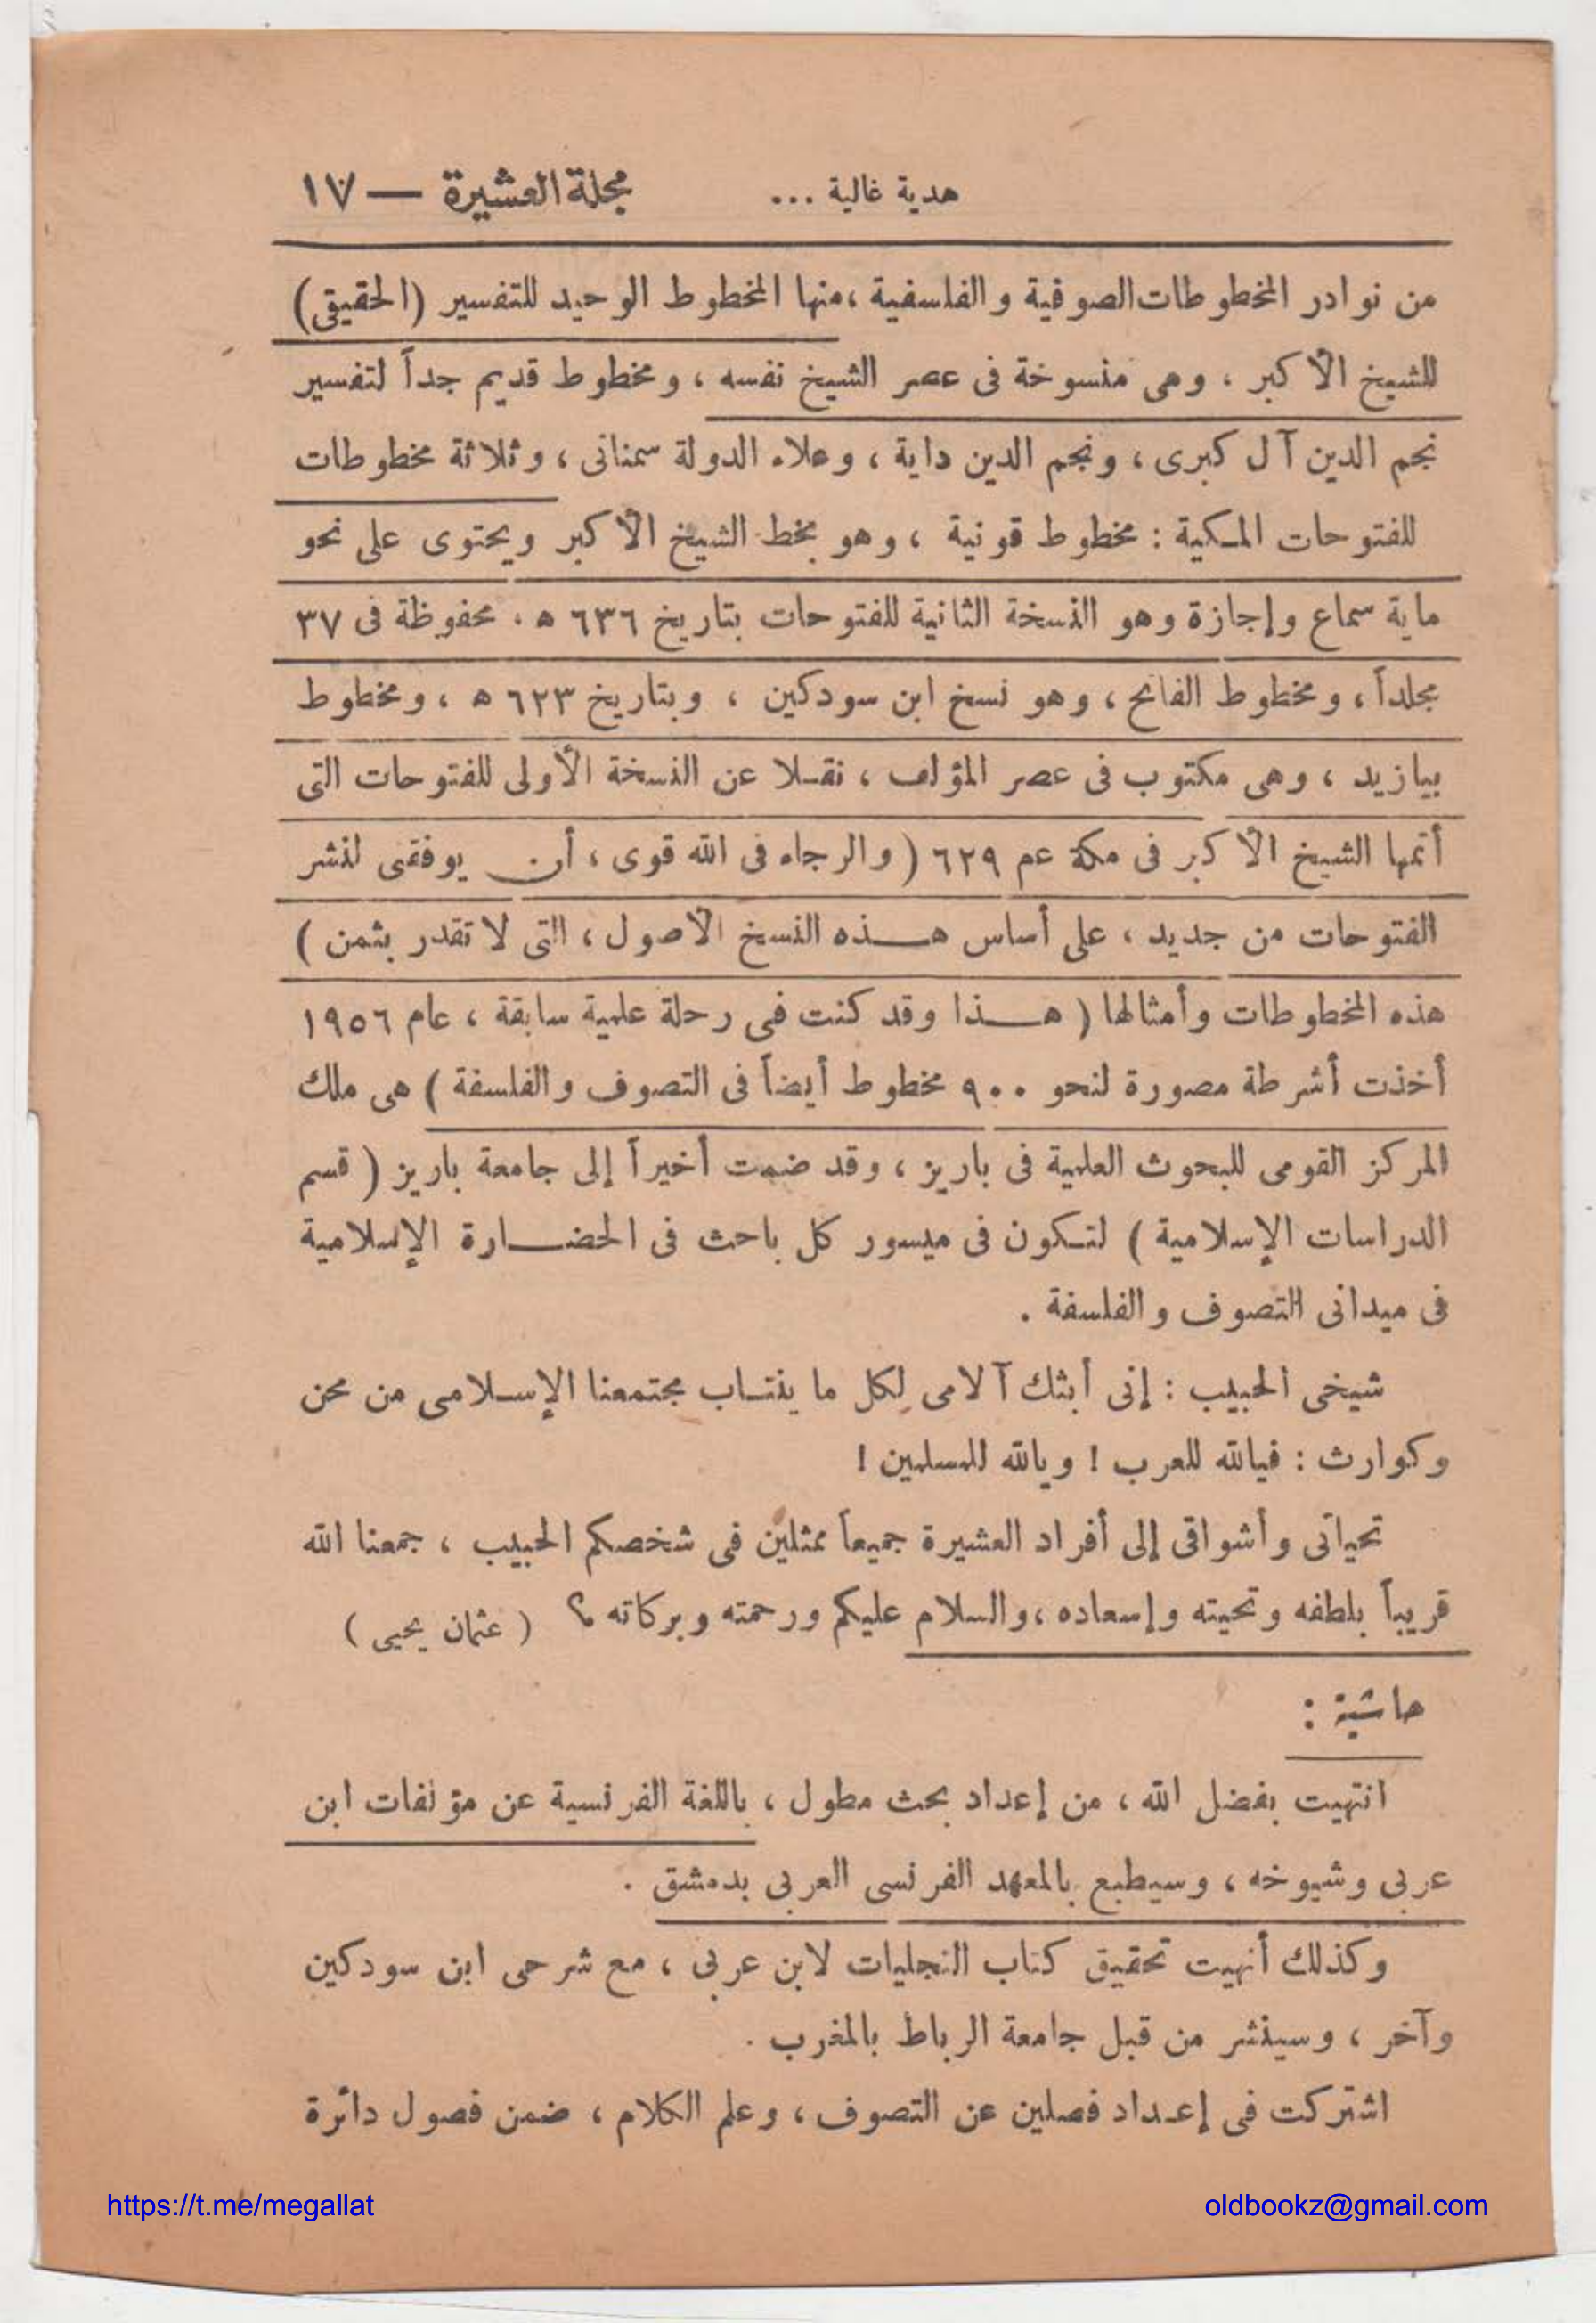 هدية غالية ... مجلة العشيرة — ١٧
من نوادر المخطوطات الصوفية والفلسفية ، منها المخطوط الوحيد للتفسير (الحقيقى)
للشيخ الأكبر ، وهى منسوخة فى عصر الشيخ نفسه ، ومخطوط قديم جداً لتفسير
نجم الدين آل كبرى ، ونجم الدين داية ، وعلاء الدولة سمنانى ، وثلاثة مخطوطات
للفتوحات المكية : مخطوط قونية ، وهو بخط الشيخ الأكبر ويحتوى على نحو
ماية سماع وإجازة وهو النسخة الثانية للفتوحات بتاريخ ٦٣٦ ه . محفوظة فى ٣٧
مجلداً ، ومخطوط الفاتح ، وهو نسخ ابن سودكين ، وبتاريخ ٦٢٣ ه ، ومخطوط
بيازيد ، وهى مكتوب فى عصر المؤلف ، نقلا عن النسخة الأولى للفتوحات التى
أتمها الشيخ الأكبر فى مكة عم ٦٢٩ ( والرجاء فى الله قوى ، أن يوفقنى لنشر
الفتوحات من جديد ، على أساس هذه النسخ الأصول ، التى لا تقدر بثمن )
هذه المخطوطات وأمثالها ( هذا وقد كنت فى رحلة علمية سابقة ، عام ١٩٥٦
أخذت أشرطة مصورة لنحو ٩٠٠ مخطوط أيضاً فى التصوف والفلسفة ) هى ملك
المركز القومى للبحوث العلمية فى باريز ، وقد ضمت أخيراً إلى جامعة باريز ( قسم
الدراسات الإسلامية ) لتكون فى ميسور كل باحث فى الحضارة الإسلامية
فى ميدانى التصوف والفلسفة .
شيخى الحبيب : إنى أبثك آلامى لكل ما ينتاب مجتمعنا الإسلامى من محن
وكوارث : فيالله للعرب ! ويالله للمسلمين !
تحياتى وأشواقى إلى أفراد العشيرة جميعاً ممثلين فى شخصكم الحبيب ، جمعنا الله
قريباً بلطفه وتحيته وإسعاده ، والسلام عليكم ورحمته وبركاته ؟ ( عثمان يحيى )
حاشية :
انتهيت بفضل الله ، من إعداد بحث مطول ، باللغة الفرنسية عن مؤلفات ابن
عربى وشيوخه ، وسيطبع بالمعهد الفرنسى العربى بدمشق .
وكذلك أنهيت تحقيق كتاب التجليات لابن عربى ، مع شرحى ابن سودكين
وآخر ، وسينشر من قبل جامعة الرباط بالمغرب .
اشتركت فى إعداد فصلين عن التصوف ، وعلم الكلام ، ضمن فصول دائرة
https://t.me/megallat
oldbookz@gmail.com